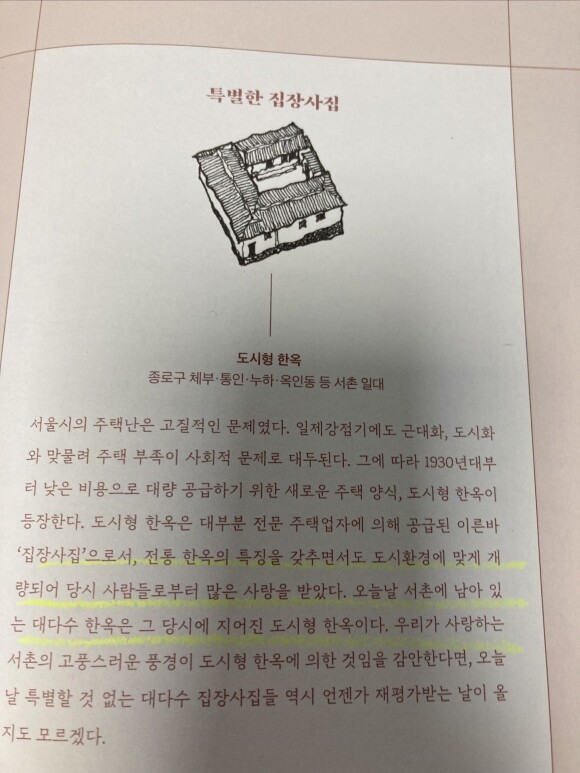 특별한 집장사집
도시형 한옥
종로구 체부·통인·누하·옥인동 등 서촌 일대
서울시의 주택난은 고질적인 문제였다. 일제강점기에도 근대화, 도시화
와 맞물려 주택 부족이 사회적 문제로 대두된다. 그에 따라 1930년대부
터 낮은 비용으로 대량 공급하기 위한 새로운 주택 양식, 도시형 한옥이
등장한다. 도시형 한옥은 대부분 전문 주택업자에 의해 공급된 이른바
‘집장사집’으로서, 전통 한옥의 특징을 갖추면서도 도시환경에 맞게 개
량되어 당시 사람들로부터 많은 사랑을 받았다. 오늘날 서촌에 남아 있
는 대다수 한옥은 그 당시에 지어진 도시형 한옥이다. 우리가 사랑하는
서촌의 고풍스러운 풍경이 도시형 한옥에 의한 것임을 감안한다면, 오늘
날 특별할 것 없는 대다수 집장사집들 역시 언젠가 재평가받는 날이 올
지도 모르겠다.